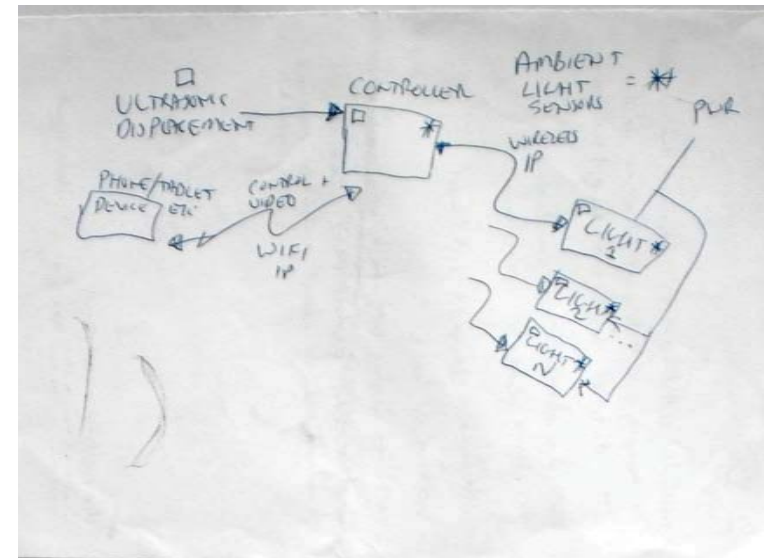 ULTRASONIC
DISPLACEMENT
CONTROLLER
AMBIENT
LIGHT
SENSORS
=
PWR
WIRELESS
IP
PHONE/TABLET
DEVICE ETC
CONTROL +
VIDEO
WIFI
IP
LIGHT
1
LIGHT
2
...
LIGHT
N